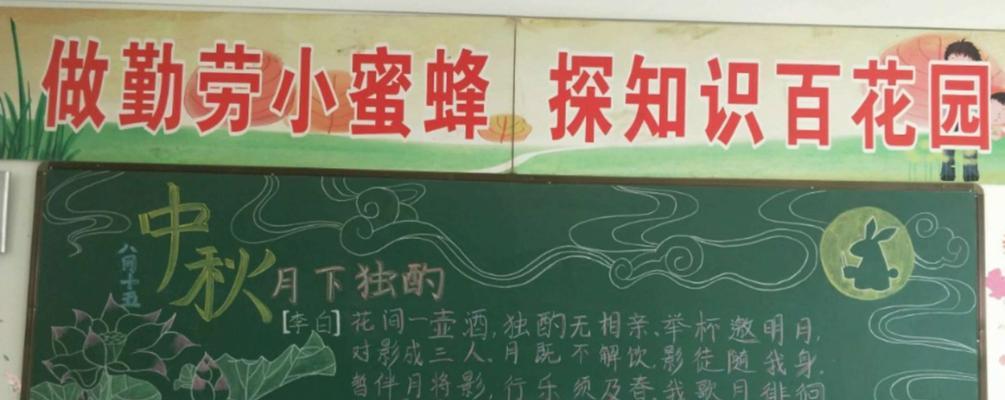 做勤劳小蜜蜂 探知识百花园
中秋
八月十五
月下独酌
[李白] 花间一壶酒,独酌无相亲.举杯邀明月,
对影成三人.月既不解饮,影徒随我身.
暂伴月将影,行乐须及春.我歌月徘徊